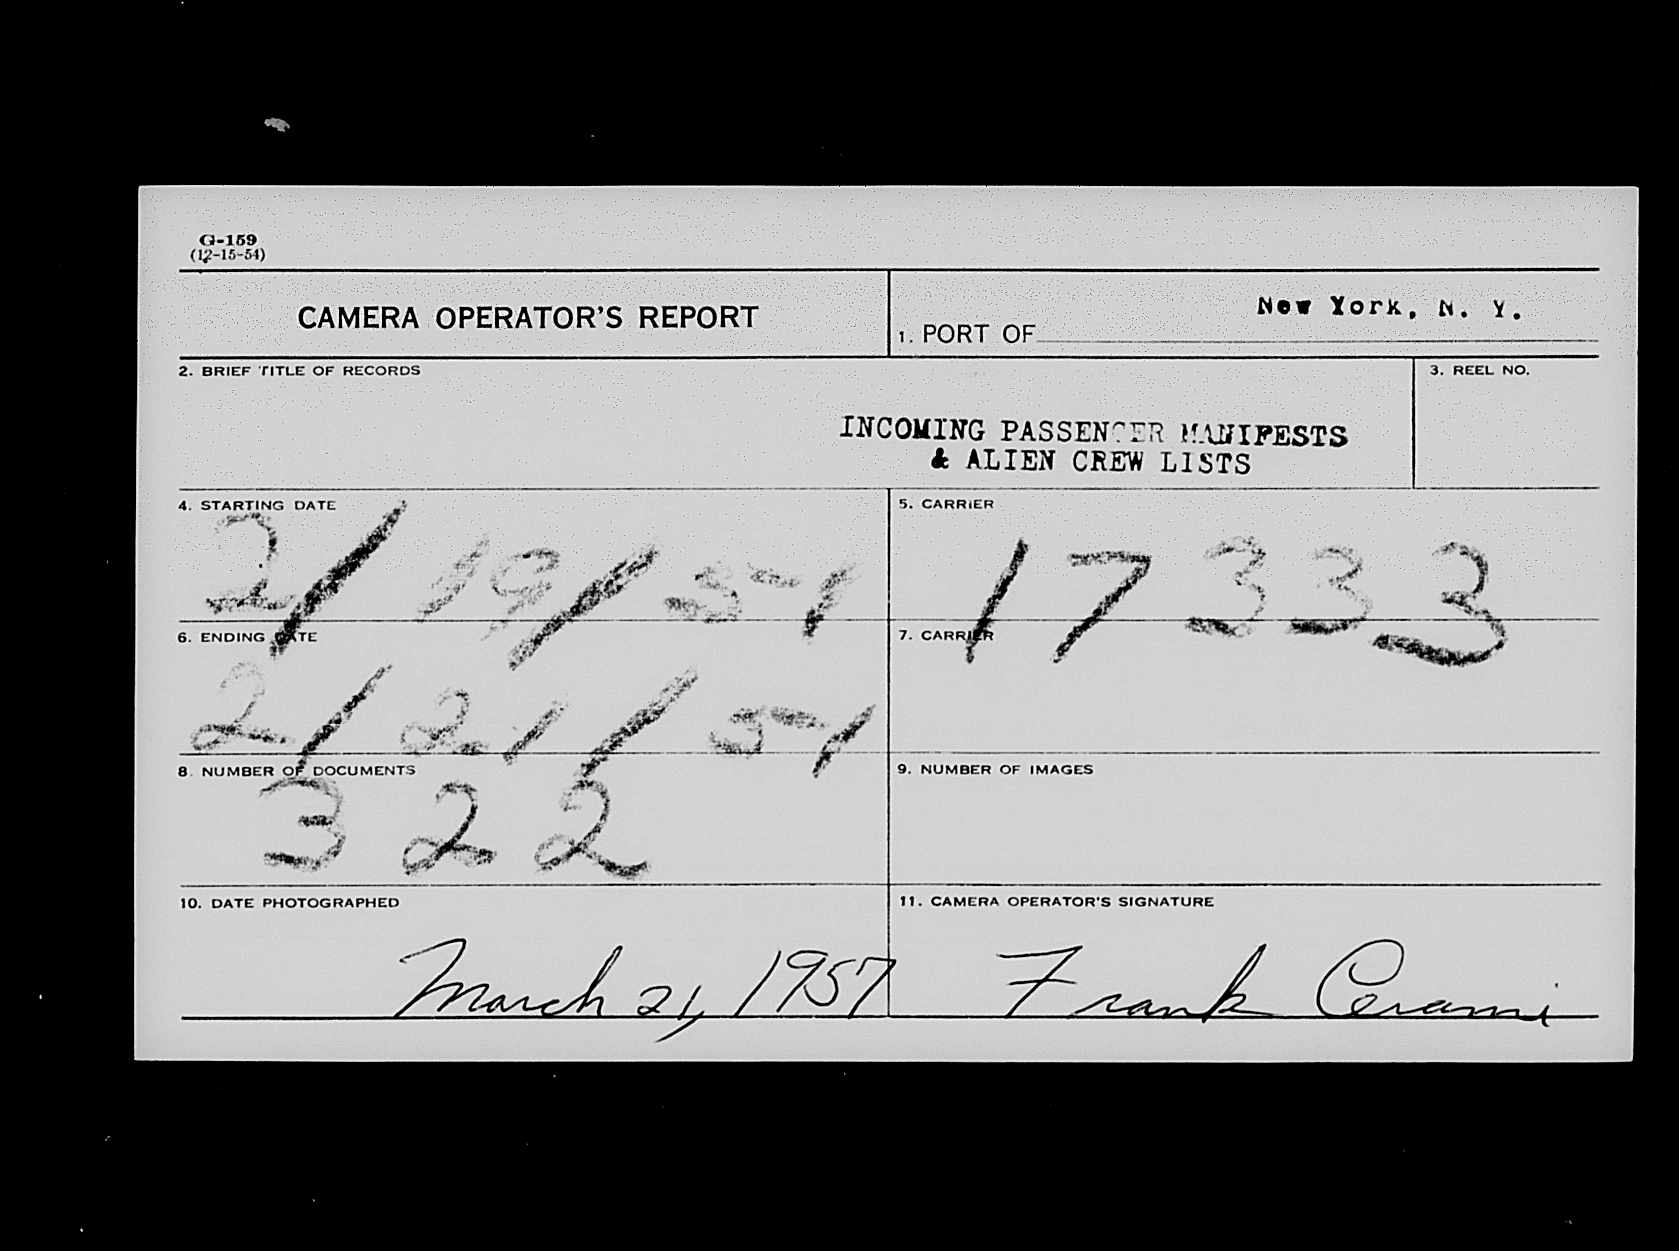 G-159
(12-15-54)
CAMERA OPERATOR'S REPORT
1. PORT OF New York, N. Y.
2. BRIEF TITLE OF RECORDS
3. REEL NO.
INCOMING PASSENGER MANIFESTS
& ALIEN CREW LISTS
4. STARTING DATE
2/19/51
5. CARRIER
17333
6. ENDING DATE
2/21/51
7. CARRIER
8. NUMBER OF DOCUMENTS
322
9. NUMBER OF IMAGES
10. DATE PHOTOGRAPHED
March 21, 1957
11. CAMERA OPERATOR'S SIGNATURE
Frank Cerami